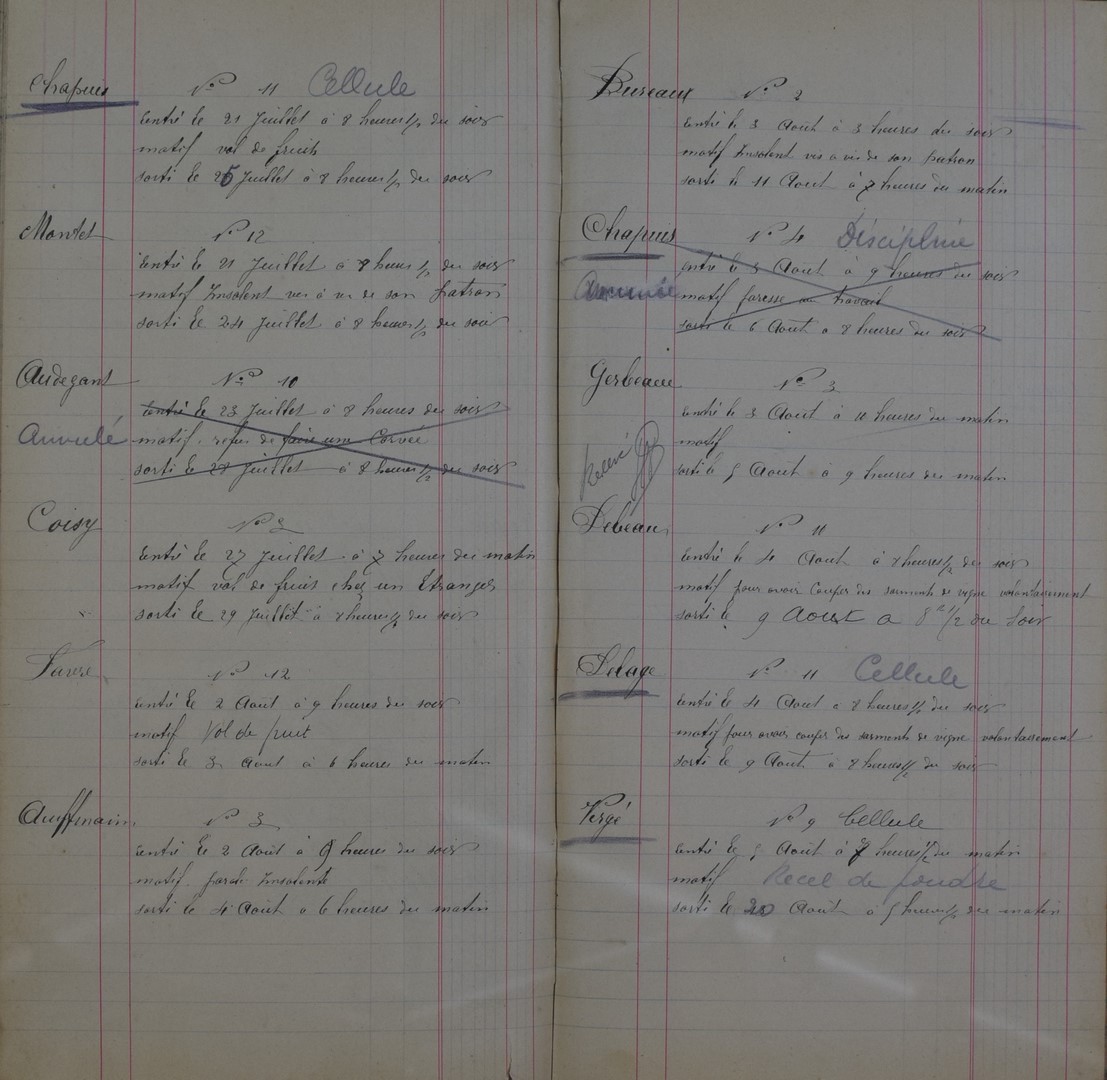 Chapuis N° 11 Cellule
entré le 21 Juillet à 8 heures 1/2 du soir
motif vol de fruits
sorti le 25 Juillet à 8 heures 1/2 du soir
Montet N° 12
entré le 21 Juillet à 8 heures 1/2 du soir
motif Insolent vis à vis de son patron
sorti le 24 Juillet à 8 heures 1/2 du soir
Audegant N° 10
entré le 23 Juillet à 8 heures du soir
Annulé motif refus de faire une Corvée
sorti le 28 Juillet à 8 heures 1/2 du soir
Coisy N° 2
entré le 27 Juillet à 7 heures du matin
motif vol de fruit chez un Etranger
sorti le 29 Juillet à 7 heures 1/2 du soir
Favre N° 12
entré le 2 Août à 9 heures du soir
motif Vol de fruit
sorti le 3 Août à 6 heures du matin
N° 3
entré le 2 Août à 9 heures du soir
motif parole Insolente
sorti le 4 Août à 6 heures du matin
Bureaux N° 2
entré le 3 Août à 3 heures du soir
motif Insolent vis à vis de son patron
sorti le 11 Août à 7 heures du matin
Chapuis N° 4 Discipline
entré le 3 Août à 9 heures du soir
Annulée motif paresse au travail
sorti le 6 Août à 8 heures du soir
Gerbeaux N° 3
entré le 3 Août à 10 heures du matin
motif
Relevé
sorti le 5 Août à 9 heures du matin
Debeau N° 11
entré le 4 Août à 7 heures 1/2 du soir
motif pour avoir couper des sarments de vigne volontairement
sorti le 9 Aout a 8h 1/2 du Soir
Delage N° 11 Cellule
entré le 4 Août à 8 heures 1/2 du soir
motif pour avoir couper des sarments de vigne volontairement
sorti le 9 Août à 8 heures 1/2 du soir
Vergé N° 9 Cellule
entré le 5 Août à 7 heures 1/2 du matin
motif Recel de poudre
sorti le 20 Août à 5 heures 1/2 du matin